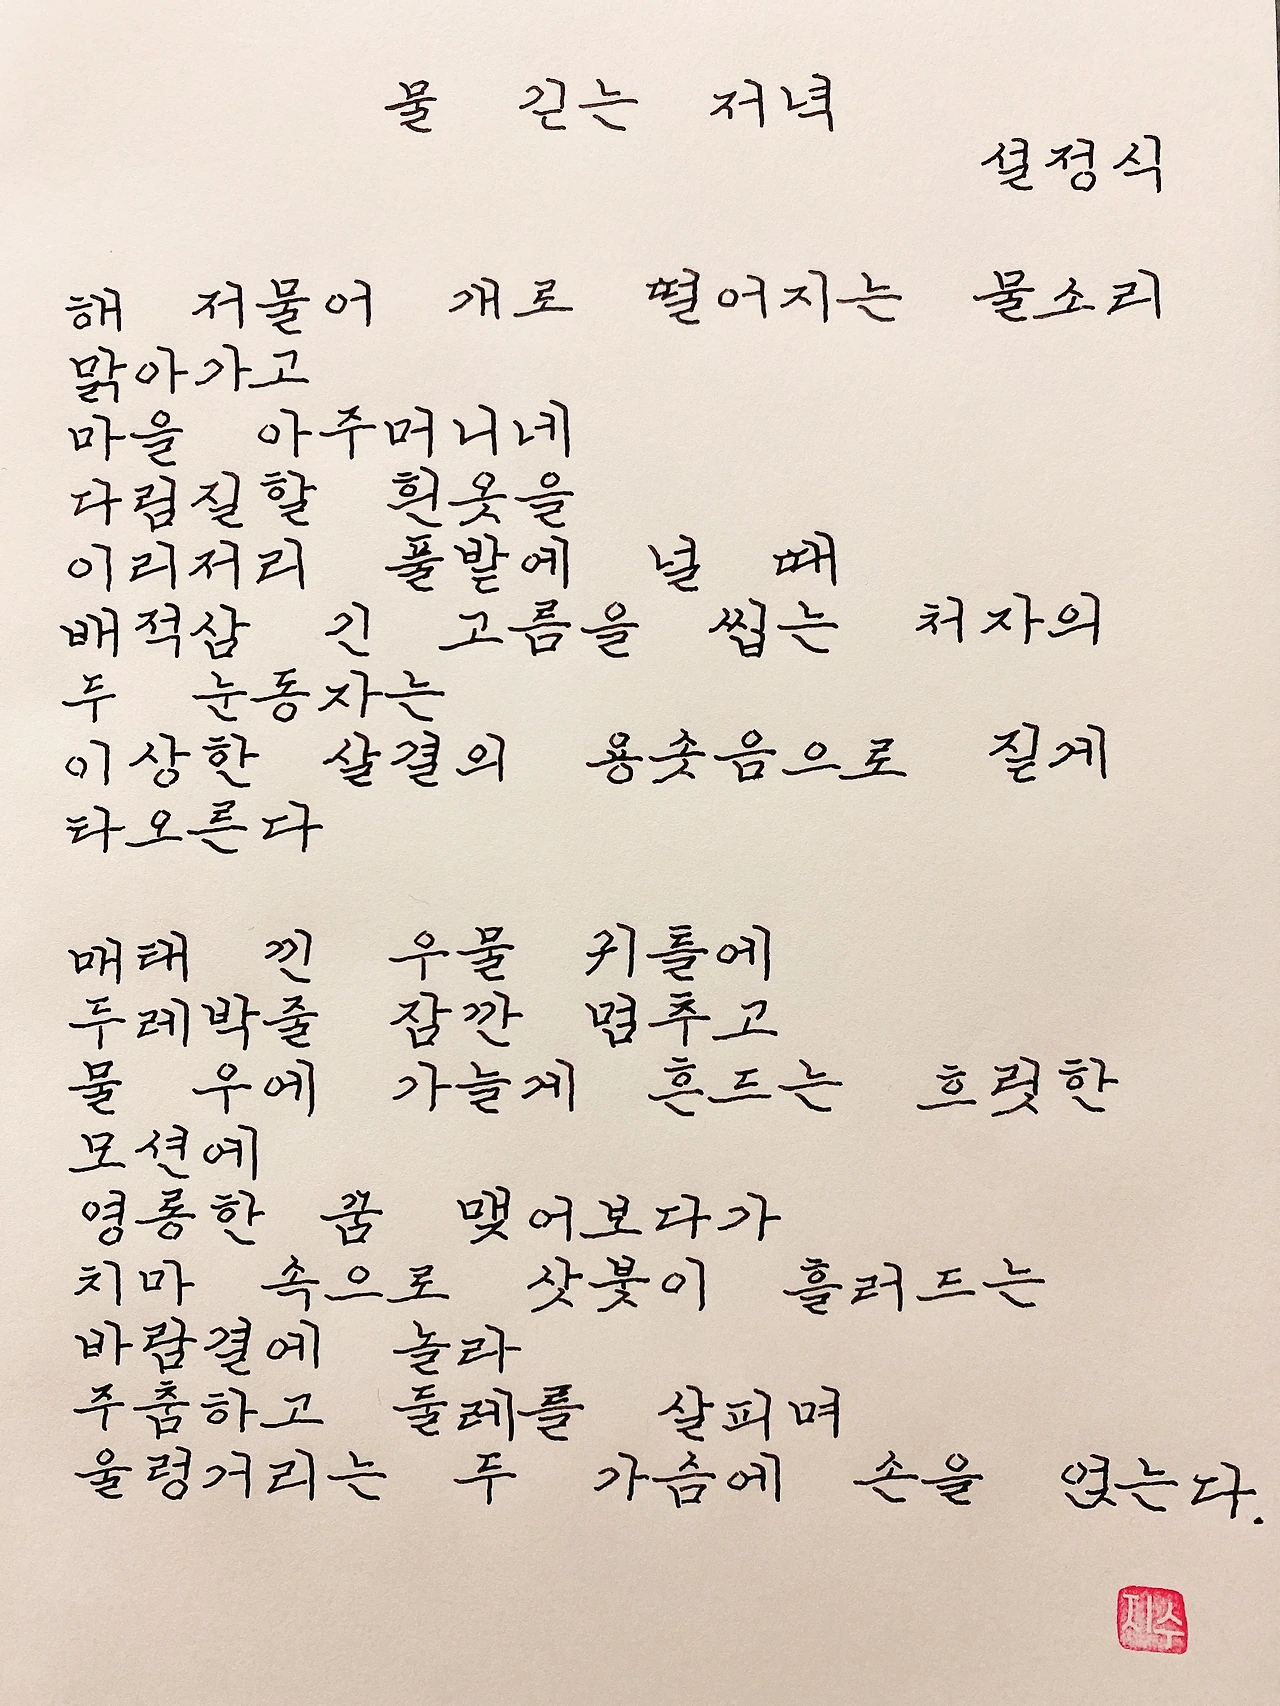 물 긷는 저녁
설정식
해 저물어 개로 떨어지는 물소리
맑아가고
마을 아주머니네
다림질할 흰옷을
이리저리 풀밭에 널 때
배적삼 긴 고름을 씹는 처자의
두 눈동자는
이상한 살결의 용솟음으로 짙게
타오른다
매태 낀 우물 귀틀에
두레박줄 잠깐 멈추고
물 우에 가늘게 흔드는 흐릿한
모션에
영롱한 꿈 맺어보다가
치마 속으로 삿붓이 흘러드는
바람결에 놀라
주춤하고 둘레를 살피며
울렁거리는 두 가슴에 손을 얹는다.
지수